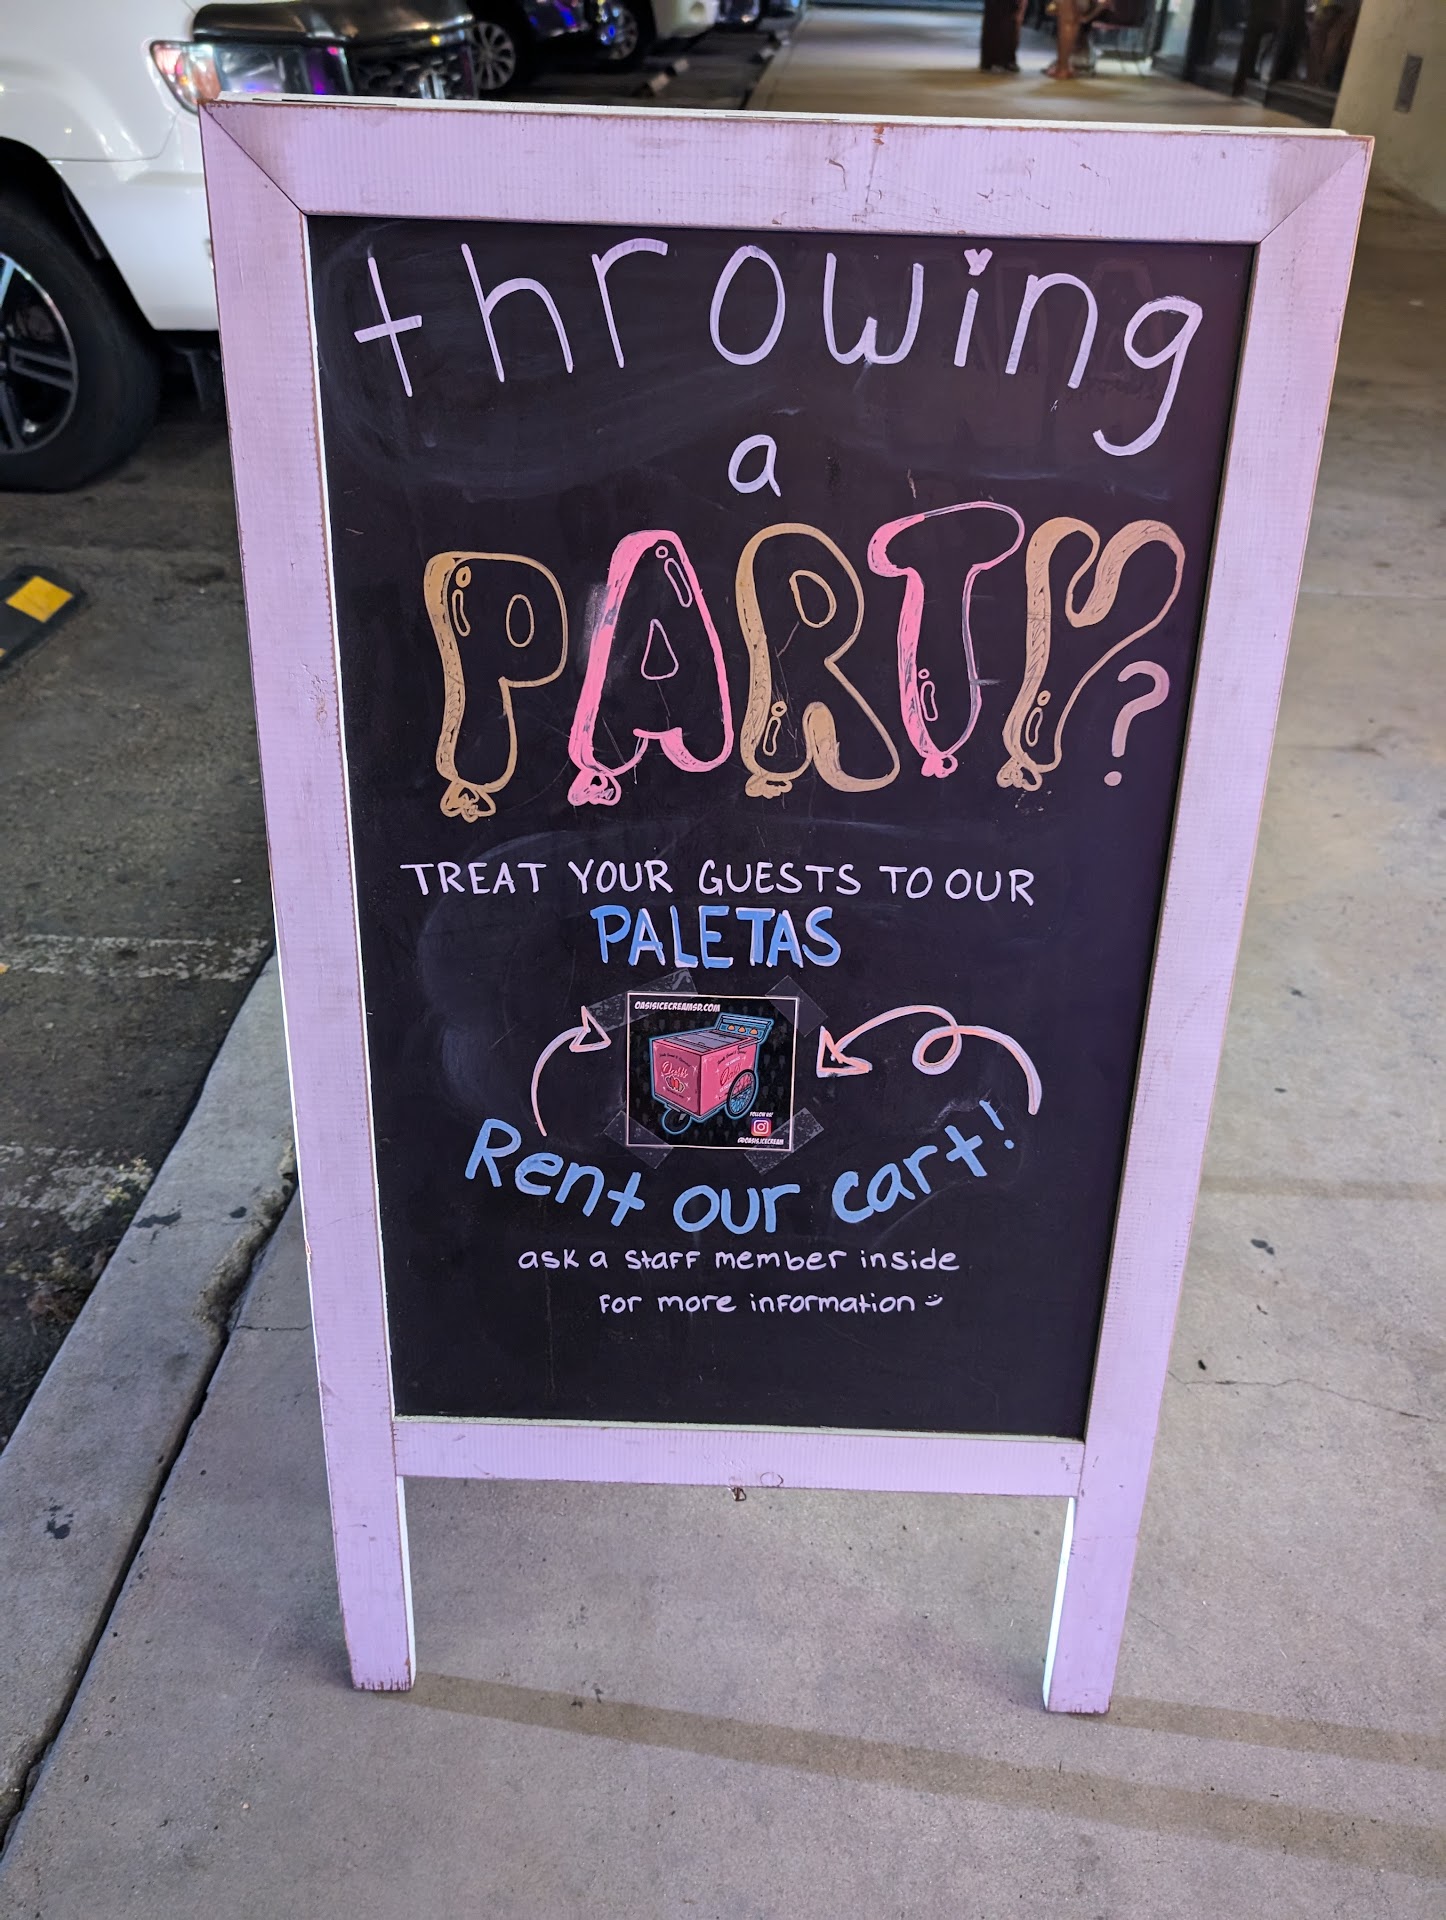 throwing
a
PARTY?
TREAT YOUR GUESTS TO OUR
PALETAS
OASISICECREAMSD.COM
Oasis
Oasis
FOLLOW US!
@OASIS.ICECREAM
Rent our cart!
ask a staff member inside
for more information